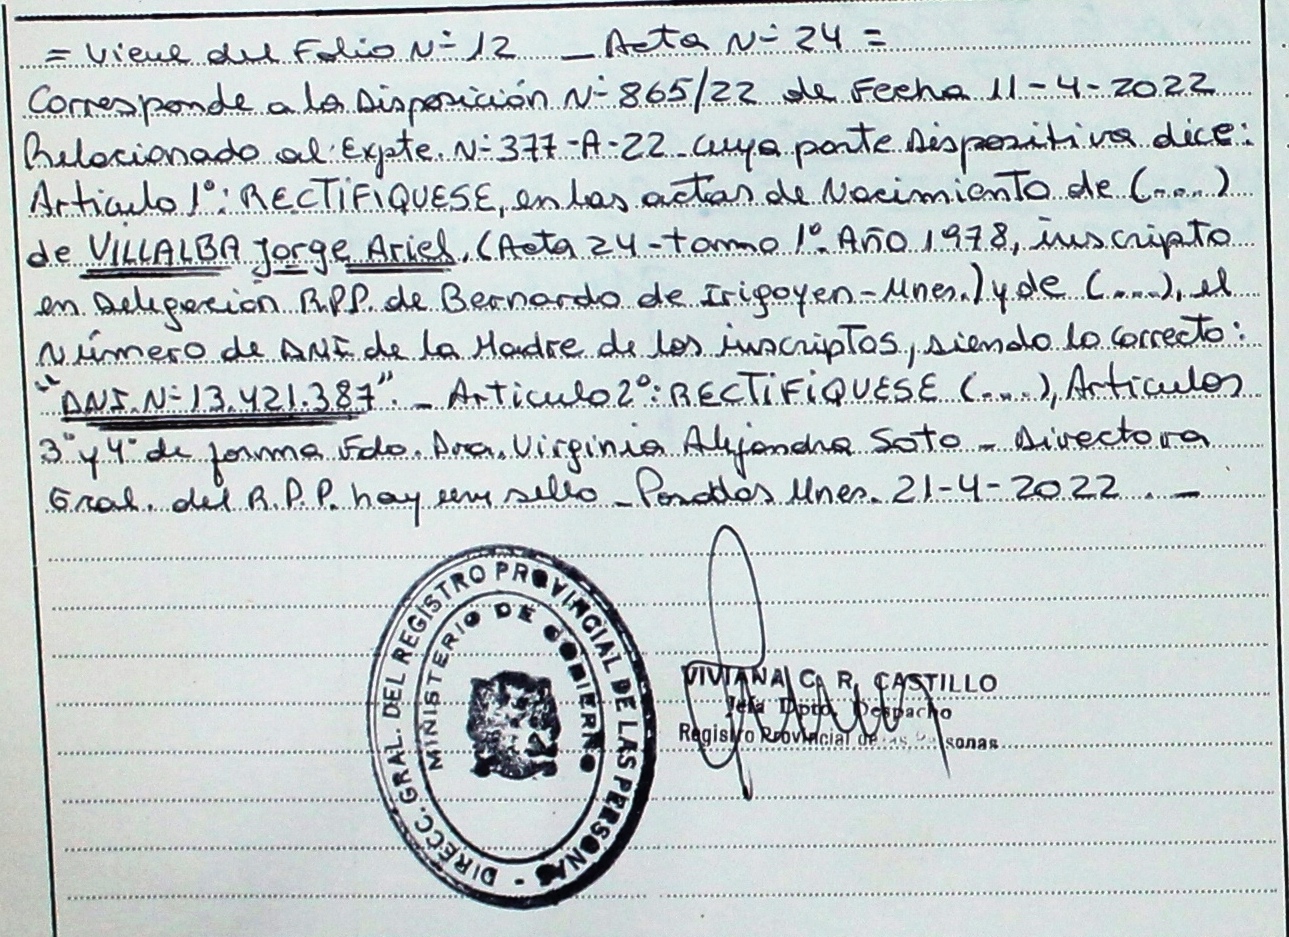 = Viene del Folio Nº 12 _ Acta Nº 24 =
Corresponde a la Disposición Nº 865/22 de Fecha 11-4-2022
Relacionado al Expte. Nº 377-A-22 cuya parte Dispositiva dice:
Articulo 1º: RECTIFIQUESE, en las actas de Nacimiento de (....)
de VILLALBA Jorge Ariel, (Acta 24 - tomo 1º Año 1978, inscripto
en Delegación R.P.P. de Bernardo de Irigoyen - Mnes.) y de (....), el
Número de DNI de la Madre de los inscriptos, siendo lo correcto:
"DNI. Nº 13.421.387". _ Articulo 2º: RECTIFIQUESE (....), Articulos
3º y 4º de forma Fdo. Dra. Virginia Alejandra Soto - Directora
Gral. del R.P.P. hay un sello _ Posadas Mnes. 21-4-2022 . _
DIRECC. GRAL. DEL REGISTRO PROVINCIAL DE LAS PERSONAS -
MINISTERIO DE GOBIERNO
VIVIANA C. R. CASTILLO
Jefa Dpto. Despacho
Registro Provincial de las Personas